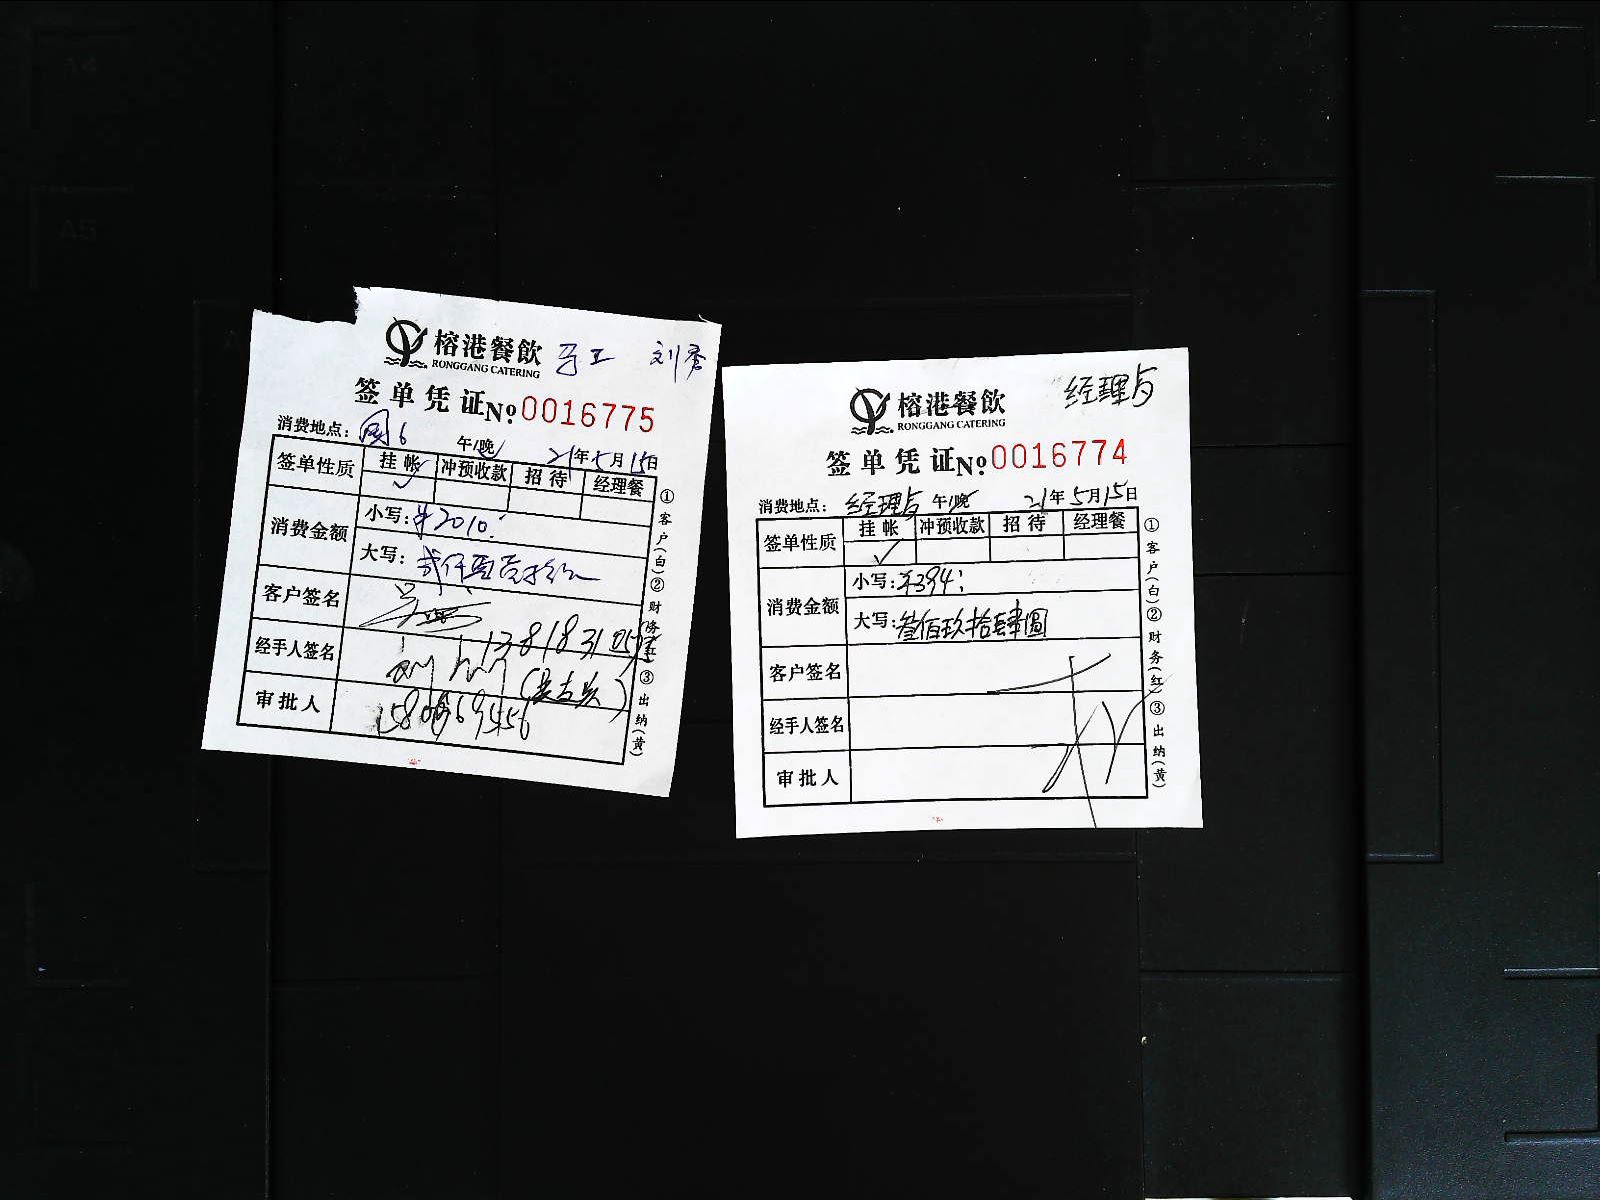 榕港餐飲
RONGGANG CATERING
签单凭证 №0016775
消费地点: 6 午/晚 21年5月15日
签单性质 挂帐 冲预收款 招待 经理餐
✓
消费金额 小写: ¥2010:
大写: 贰仟
客户签名
经手人签名
审批人
①客户(白)②财务(红)③出纳(黄)
经理与
榕港餐飲
RONGGANG CATERING
签单凭证 №0016774
消费地点: 经理与 午/晚 21年5月15日
签单性质 挂帐 冲预收款 招待 经理餐
✓
消费金额 小写: ¥394:
大写: 叁佰玖拾肆圆
客户签名
经手人签名
审批人
①客户(白)②财务(红)③出纳(黄)